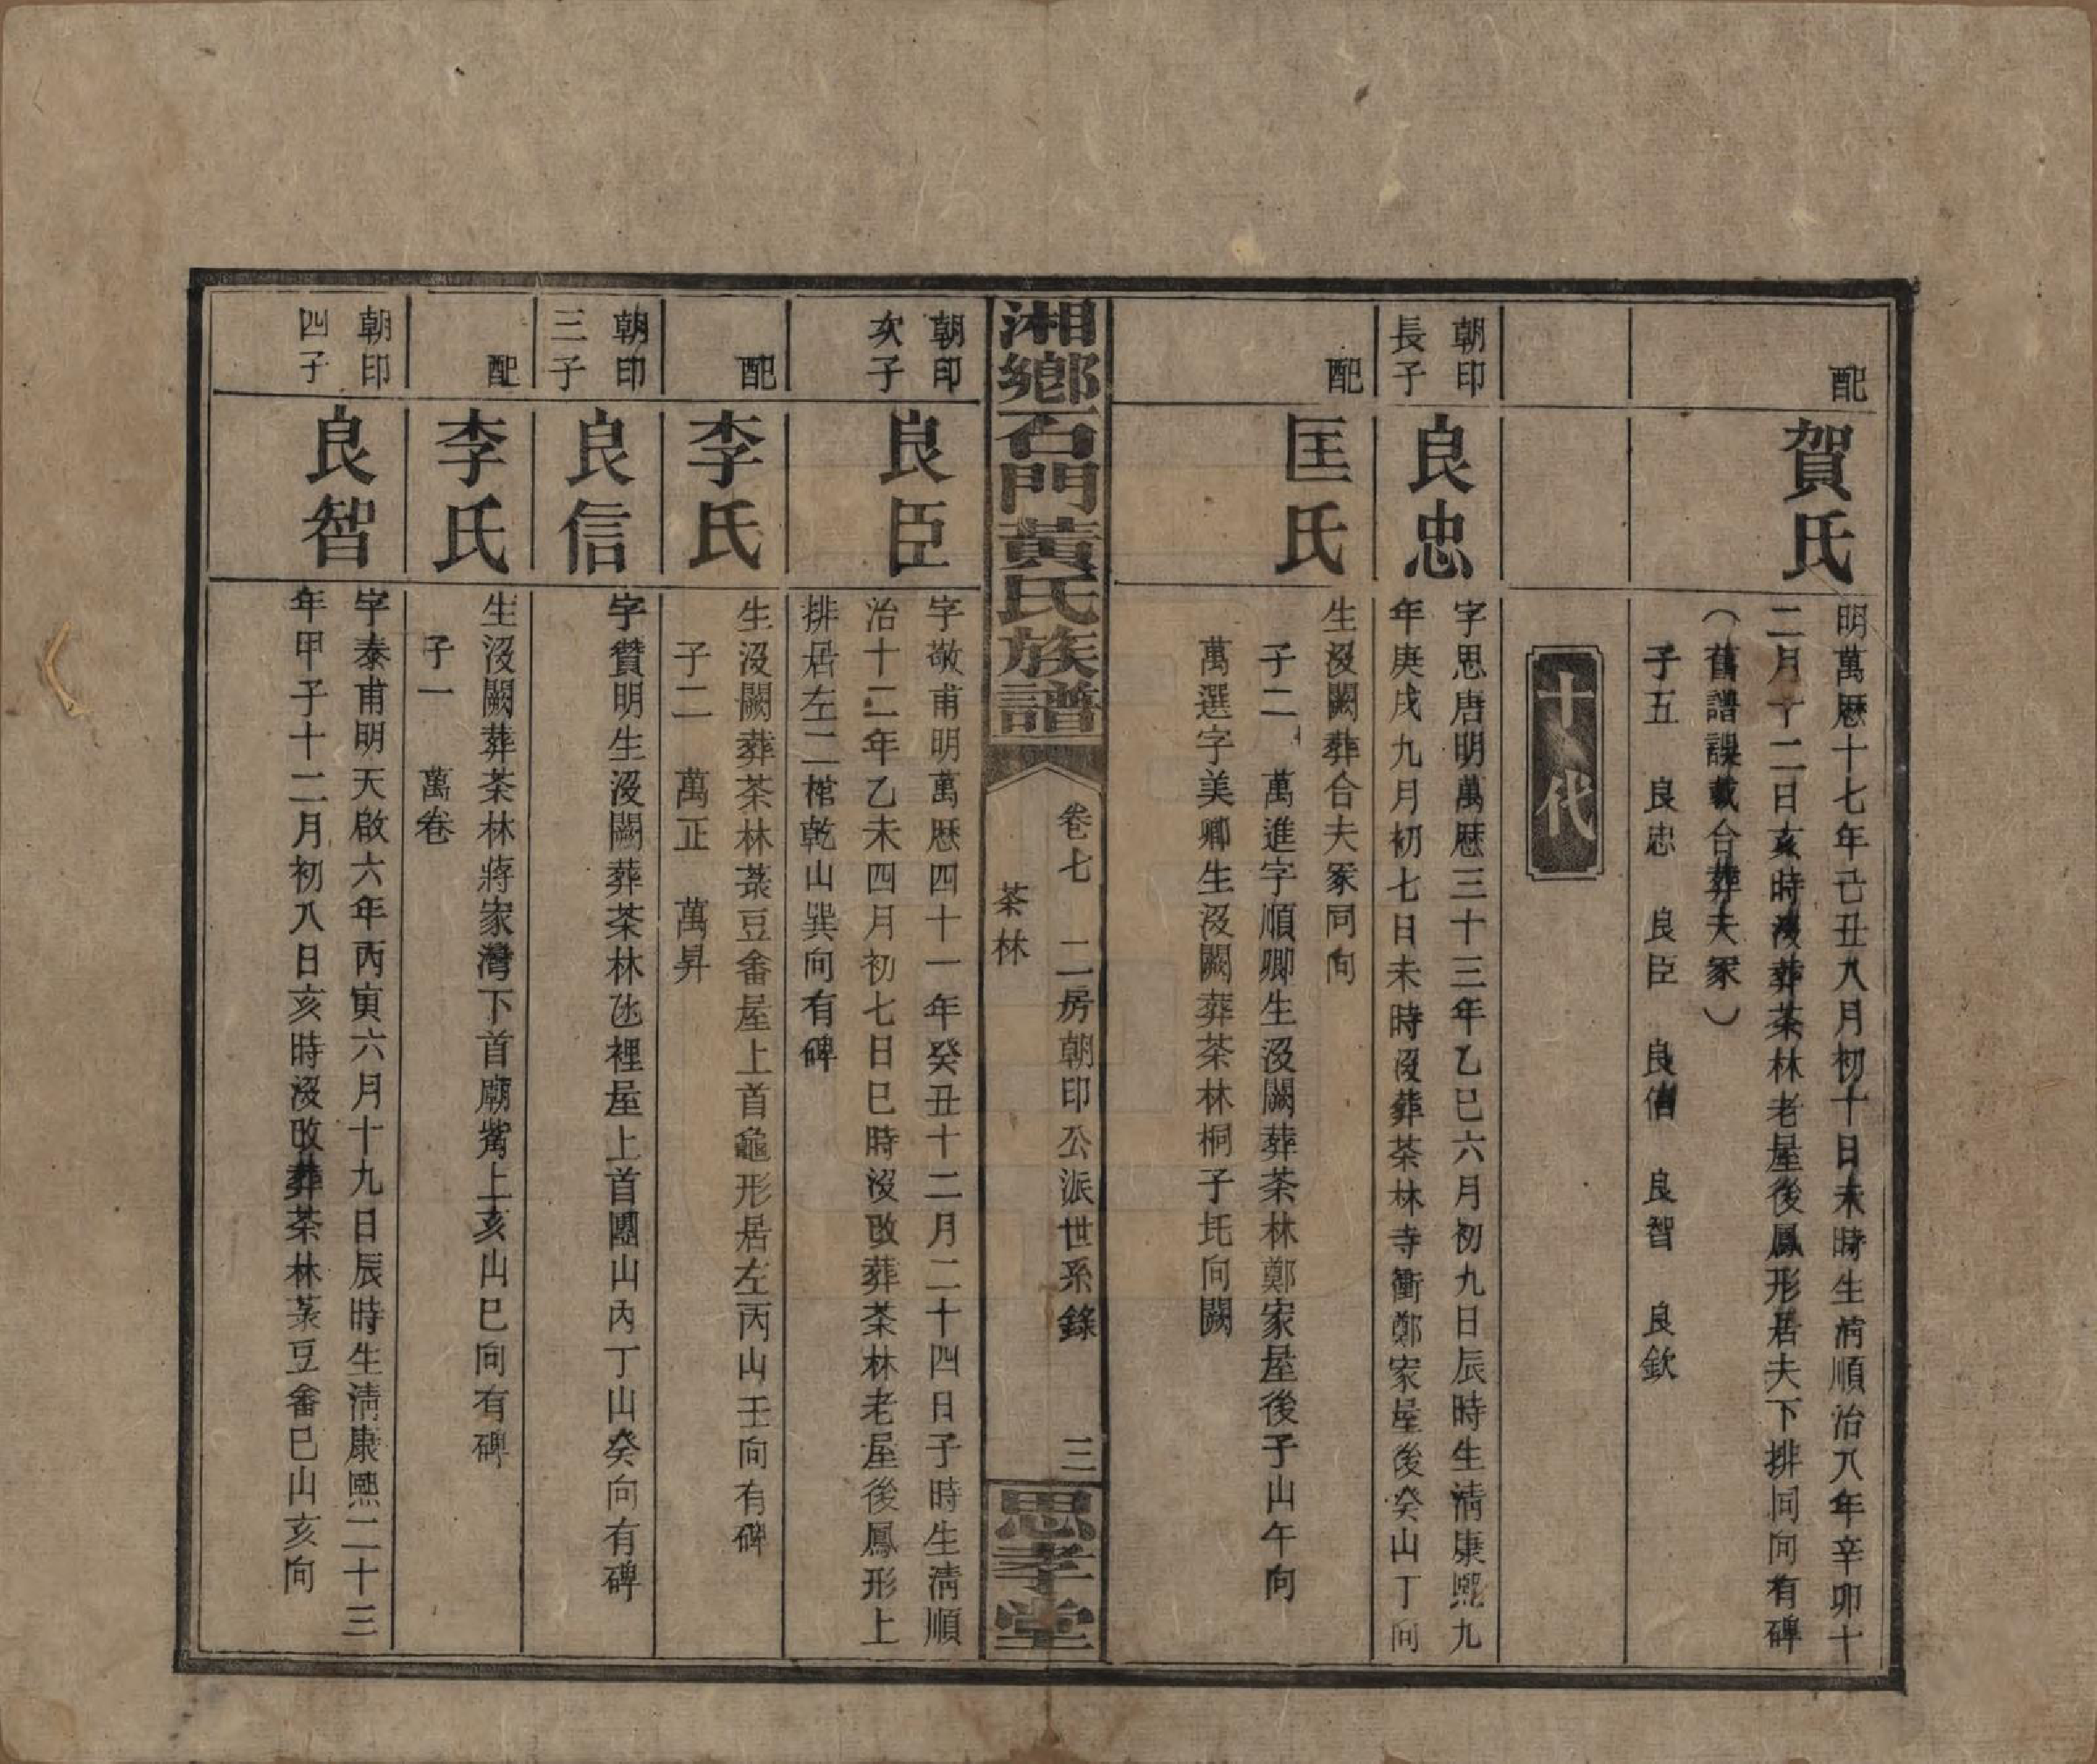 配
賀氏
明萬厯十七年己丑八月初十日未時生清順治八年辛卯十
二月十二日亥時沒葬茶林老屋後鳳形居夫下排同向有碑
（舊譜誤載合葬夫冢）
子五　良忠　良臣　良信　良智　良欽
十代
朝印
長子
良忠
字思唐明萬厯三十三年乙巳六月初九日辰時生清康熙九
年庚戌九月初七日未時沒葬茶林寺衝鄭家屋後癸山丁向
配
匡氏
生沒闕葬合夫冢同向
子二　萬進字順卿生沒闕葬茶林鄭家屋後子山午向
萬選字美卿生沒闕葬茶林桐子圫向闕
湘鄉石門黃氏族譜
卷七　二房朝印公派世系錄　三
茶林
思孝堂
朝印
次子
良臣
字敬甫明萬厯四十一年癸丑十二月二十四日子時生清順
治十二年乙未四月初七日巳時沒改葬茶林老屋後鳳形上
排居左二棺乾山巽向有碑
配
李氏
生沒闕葬茶林菉豆畬屋上首龜形居左丙山壬向有碑
子二　萬正　萬昇
朝印
三子
良信
字贊明生沒闕葬茶林氹裡屋上首團山內丁山癸向有碑
配
李氏
生沒闕葬茶林蔣家灣下首廟觜上亥山巳向有碑
子一　萬卷
朝印
四子
良智
字泰甫明天啟六年丙寅六月十九日辰時生清康熙二十三
年甲子十二月初八日亥時沒改葬茶林菉豆畬巳山亥向